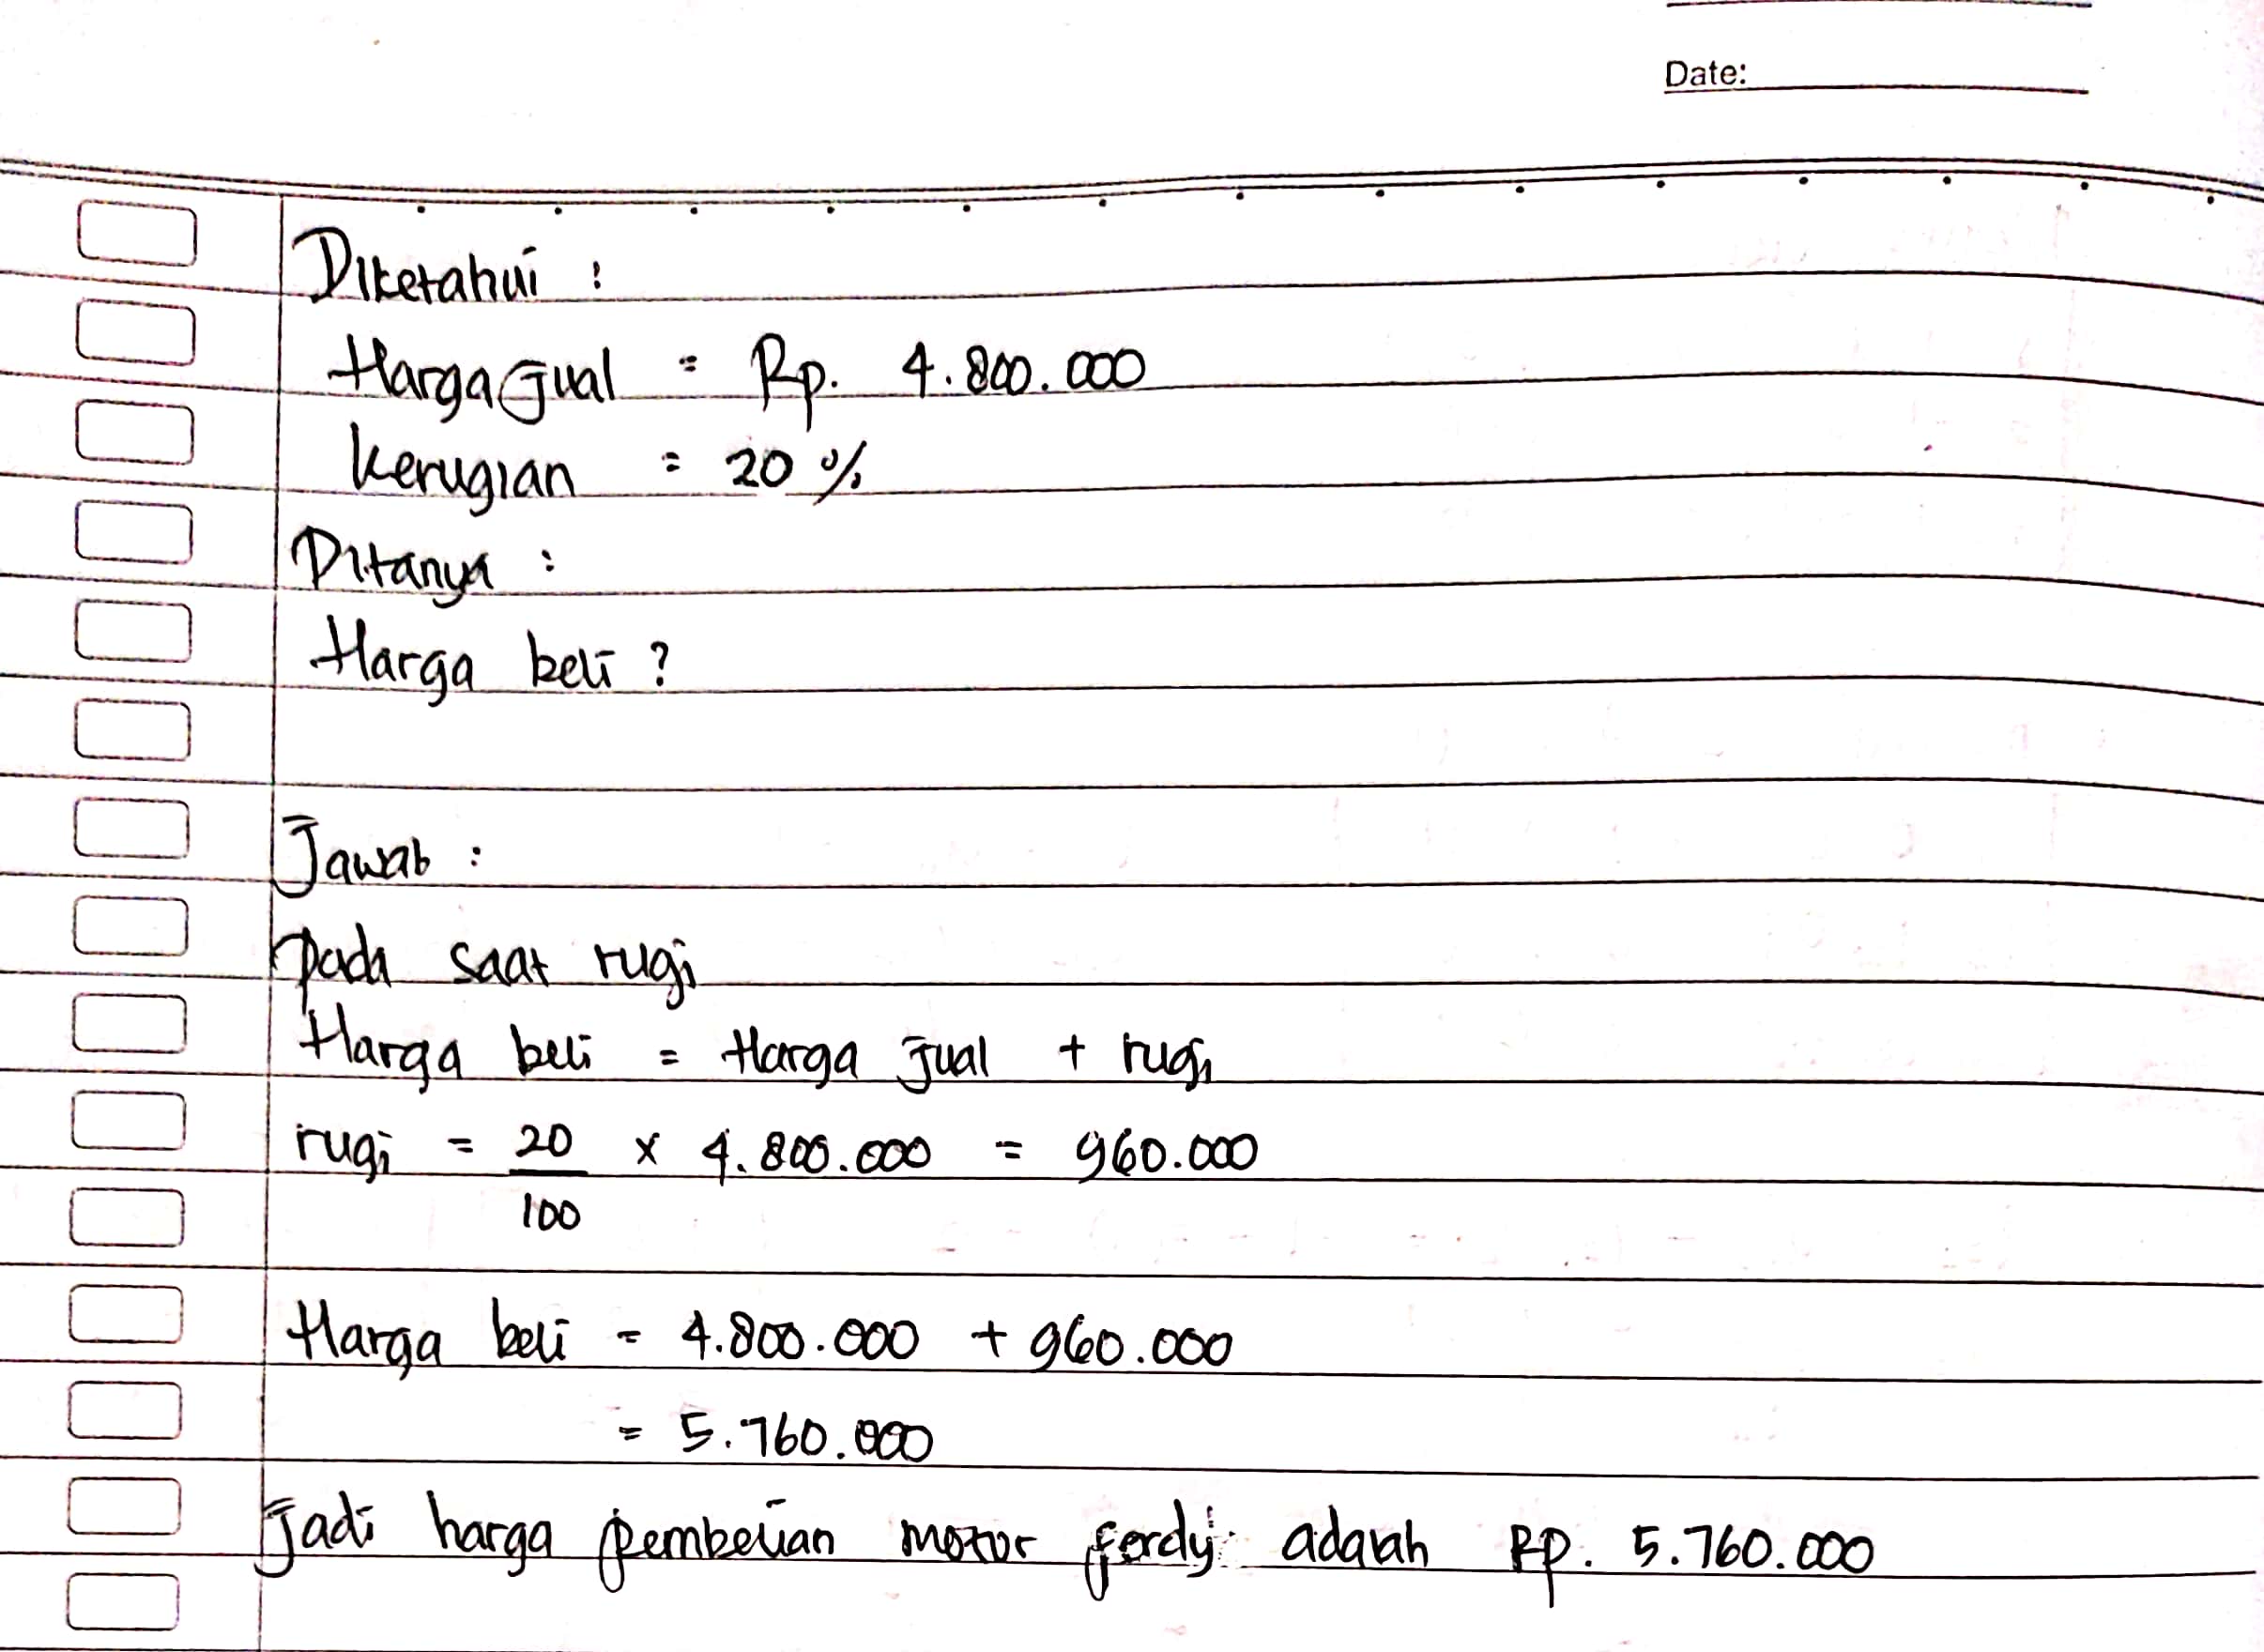 Date:
Diketahui :
Harga Jual = Rp. 4.800.000
Kerugian = 20 %
Ditanya :
Harga beli ?
Jawab :
pada saat rugi
Harga beli = Harga Jual + rugi
rugi = 20/100 x 4.800.000 = 960.000
Harga beli = 4.800.000 + 960.000
= 5.760.000
Jadi harga pembelian motor ferdy adalah Rp. 5.760.000